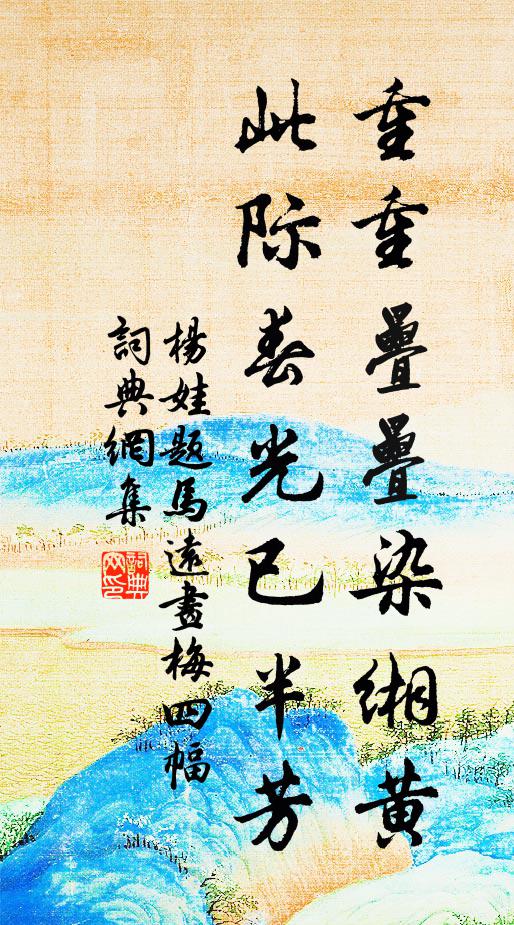 重重疊疊染緗黃
此际春光已半芳
楊娃题馬遠畫梅四幅
詞典網集
詞典
网印